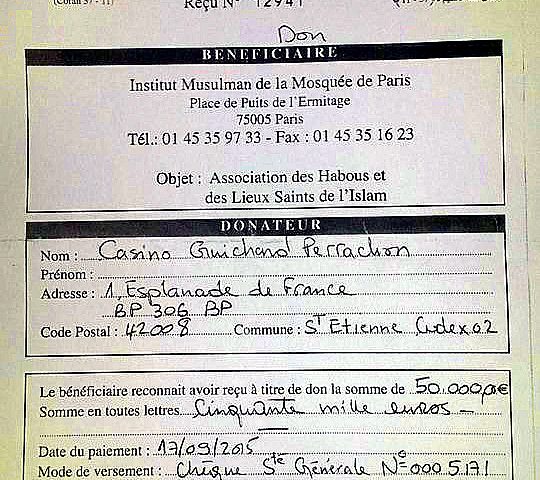 (Coran 57 - 11)
Reçu N° 12941
Don
BENEFICIAIRE
Institut Musulman de la Mosquée de Paris
Place de Puits de l'Ermitage
75005 Paris
Tél.: 01 45 35 97 33 - Fax : 01 45 35 16 23
Objet : Association des Habous et
des Lieux Saints de l'Islam
DONATEUR
Nom : Casino Guichard Perrachon
Prénom :
Adresse : 1, Esplanade de France
BP 306 BP
Code Postal : 42008 Commune : St Etienne Cedex 02
Le bénéficiaire reconnait avoir reçu à titre de don la somme de 50.000,00€
Somme en toutes lettres Cinquante mille euros —
Date du paiement : 17/09/2015
Mode de versement : Chèque Sté Générale N° 000 5171